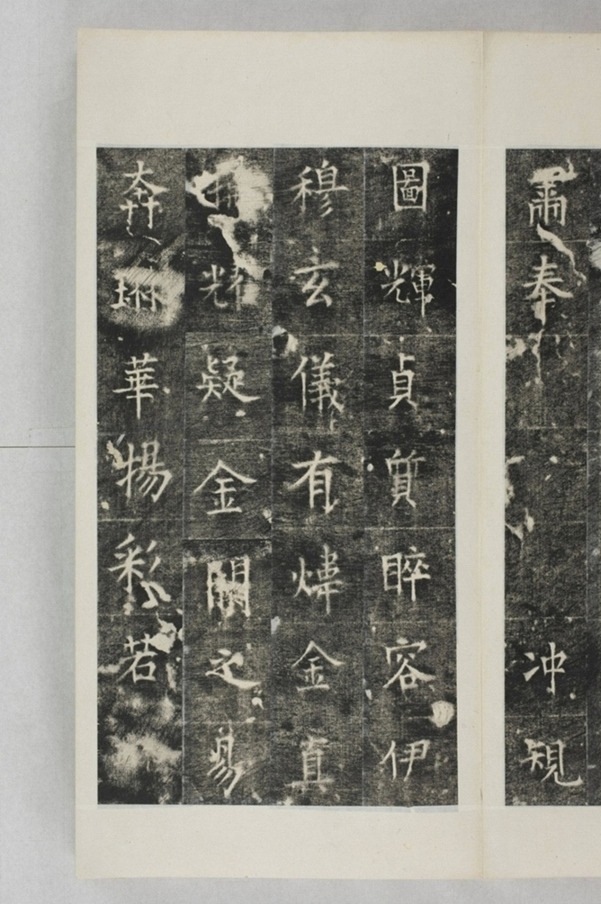 肅奉冲規
圖輝貞質睟容伊
穆玄儀有煒金真
耀疑金闕之易
奔琳華揚彩若